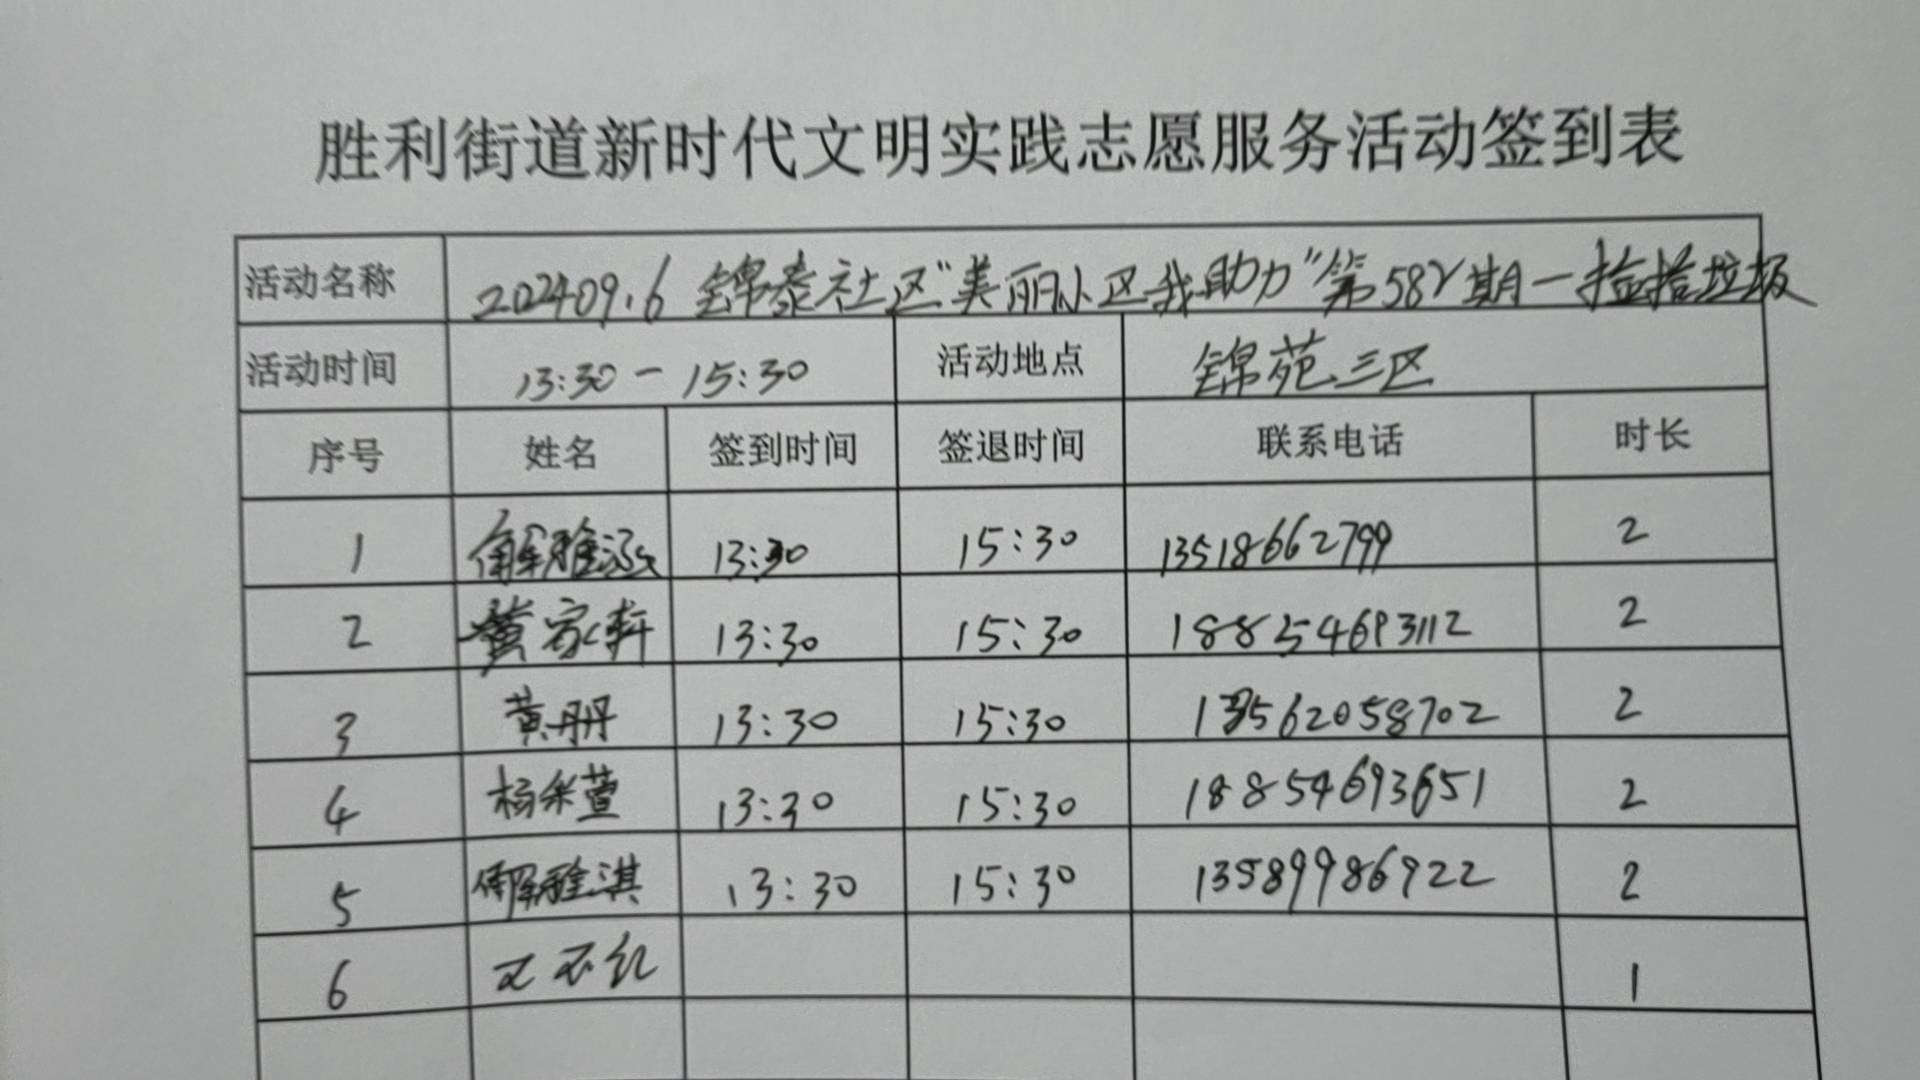 胜利街道新时代文明实践志愿服务活动签到表
活动名称 202409.6 锦泰社区“美丽小区我助力”第582期一捡拾垃圾
活动时间 13:30-15:30 活动地点 锦苑三区
序号 姓名 签到时间 签退时间 联系电话 时长
1 解雅涵 13:30 15:30 13518662799 2
2 黄家轩 13:30 15:30 18854693112 2
3 黄册 13:30 15:30 13562058702 2
4 杨采萱 13:30 15:30 18854693651 2
5 解雅淇 13:30 15:30 13589986922 2
6 1